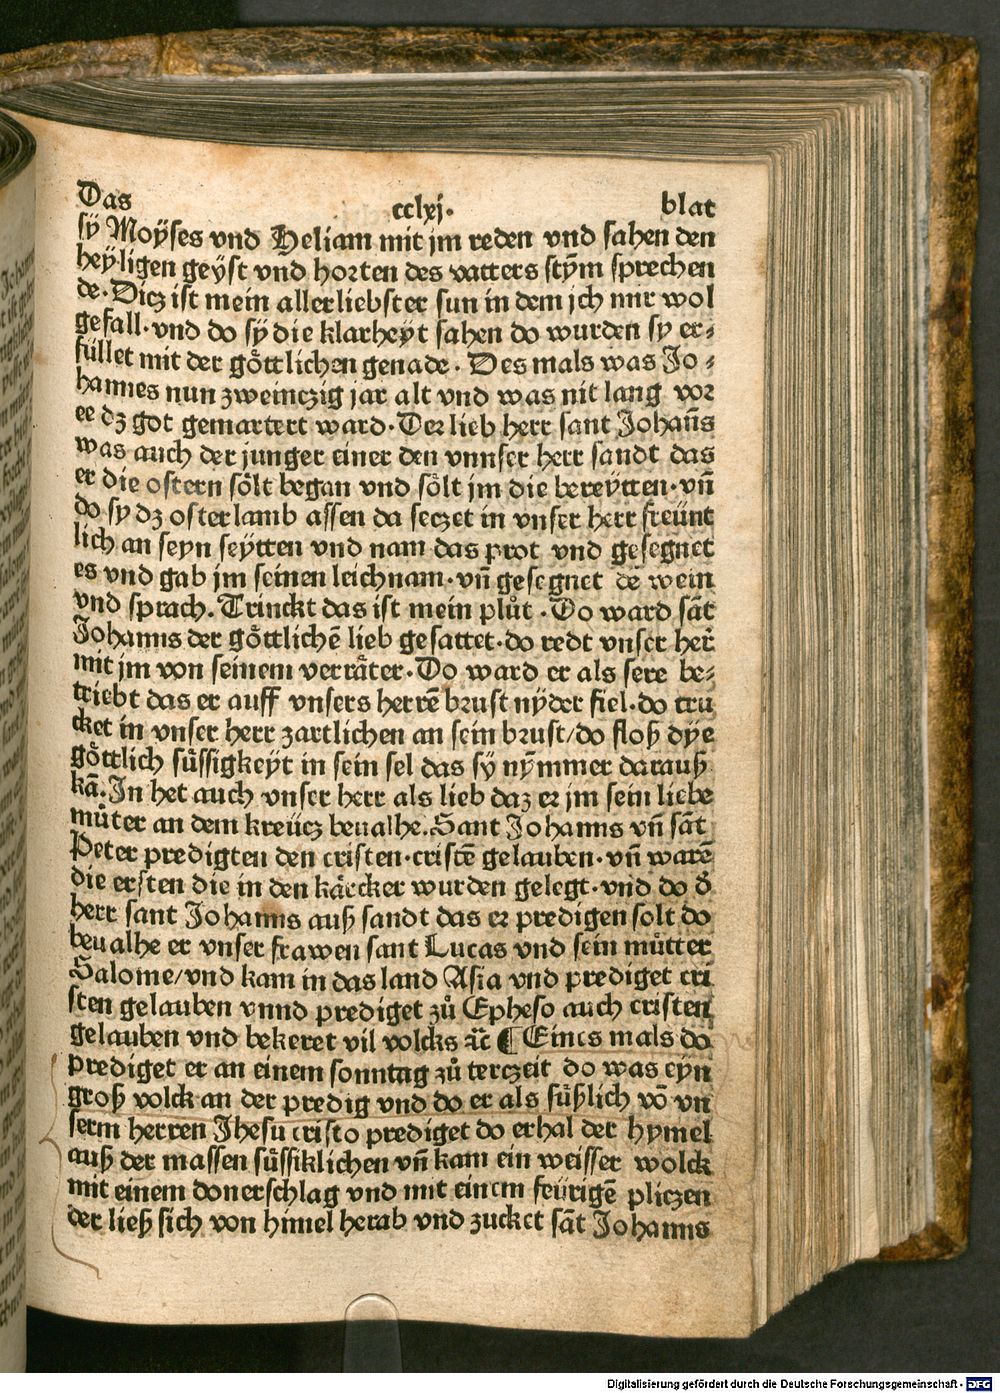 Das cclxj. blat
sÿ Moÿses vnd Heliam mit jm reden vnd sahen den
heÿligen geÿst vnd horten des vatters stÿm̄ sprechen
de. Dicz ist mein allerliebster sun in dem jch mir wol
gefall. vnd do sÿ die klarheÿt sahen do wurden sy er⸗
füllet mit der goͤttlichen genade. Des mals was Jo⸗
hannes nun zweinczig jar alt vnd was nit lang vor
ee dz got gemartert ward. Der lieb herr sant Johan̄s
was auch der junger einer den vnnser herr sandt das
er die ostern soͤlt began vnd soͤlt jm die bereÿtten. vn̄
do sy dz osterlamb assen da seczet in vnser herr freünt
lich an seyn seÿtten vnd nam das prot vnd gesegnet
es vnd gab jm seinen leichnam. vn̄ gesegnet dē wein
vnd sprach. Trinckt das ist mein plůt. Do ward sāt
Johanns der goͤttlichē lieb gesattet. do redt vnser her̄
mit jm von seinem verraͤter. Do ward er als sere be⸗
triebt das er auff vnsers herrē brust nÿder fiel. do tru
cket in vnser herr zartlichen an sein brust/do floß dÿe
goͤttlich suͤssigkeÿt in sein sel das sÿ nÿm̄mer darauß
kā. In het auch vnser herr als lieb daz er jm sein liebe
můter an dem kreücz beualhe. Sant Johanns vn̄ sāt
Peter predigten den cristen. cristē gelauben. vn̄ warē
die ersten die in den kaͤrcker wurden gelegt. vnd do d̄
herr sant Johanns auß sandt das er predigen solt do
beualhe er vnser frawen sant Lucas vnd sein můtter
Salome/vnd kam in das land Asia vnd prediget cri
sten gelauben vnnd prediget zů Epheso auch cristen
gelauben vnd bekeret vil volcks ꝛc̄ ¶ Eines mals do
prediget er an einem sonntag zů terczeit do was eyn
groß volck an der predig vnd do er als suͤßlich vō vn
serm herren Jhesu cristo prediget do erhal der hymel
auß der massen suͤssiklichen vn̄ kam ein weisser wolck
mit einem donerschlag vnd mit einem feürigē pliczen
der ließ sich von himel herab vnd zucket sāt Johanns
Digitalisierung gefördert durch die Deutsche Forschungsgemeinschaft - DFG